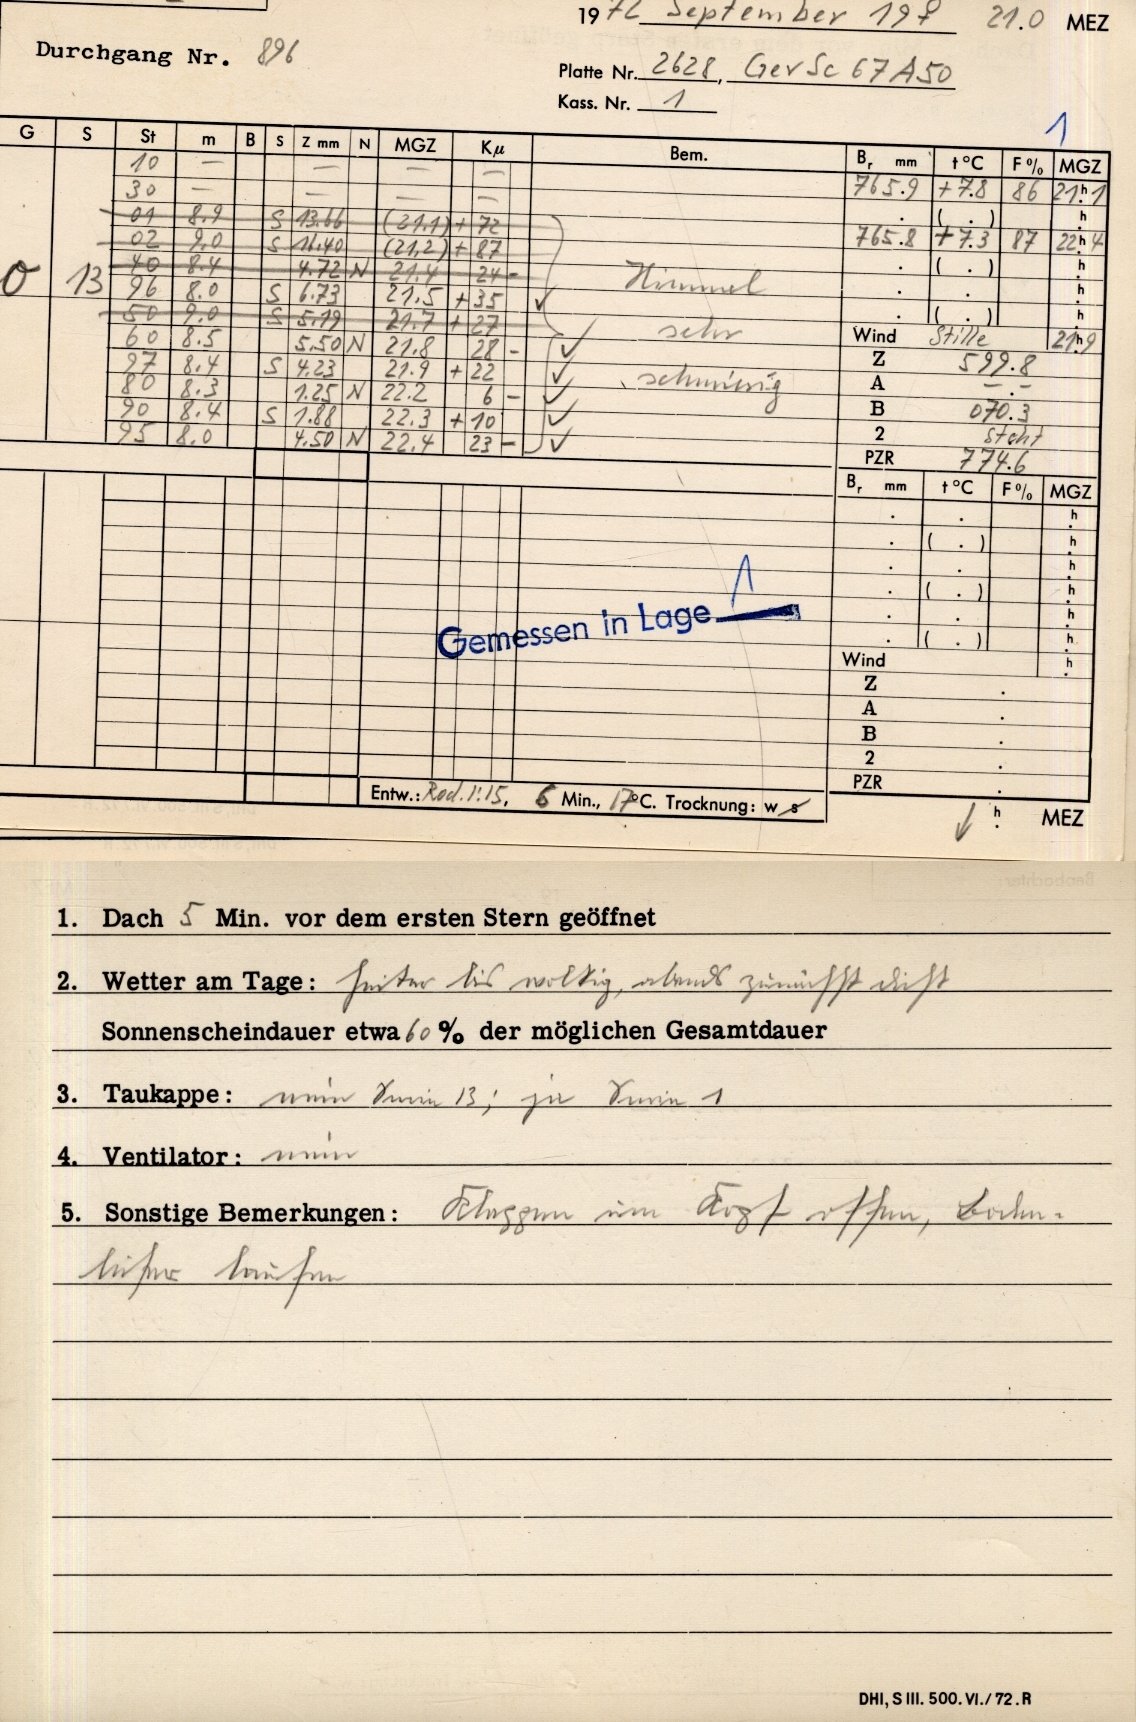 1972 September 19 f 21.0 MEZ
Durchgang Nr. 896
Platte Nr. 2628, Ger Sc 67 A 50
Kass. Nr. 1
1
G S St m B S Z mm N MGZ Kμ Bem. Br mm t °C F % MGZ
10 — — — — 765.9 +7.8 86 21h.1
30 — — — — . ( . ) h
01 8.9 S 13.66 (21.1) + 72 765.8 +7.3 87 22h.4
02 9.0 S 16.40 (21.2) + 87 . ( . ) h
40 8.4 4.72 N 21.4 24 - Himmel . . h
0 13 96 8.0 S 6.73 21.5 + 35 ✓ . ( . ) h
50 9.0 S 5.19 21.7 + 27 sehr Wind Stille 21h.9
60 8.5 5.50 N 21.8 28 - ✓ Z 599.8
97 8.4 S 4.23 21.9 + 22 ✓ schmierig A -.-
80 8.3 1.25 N 22.2 6 - ✓ B 070.3
90 8.4 S 1.88 22.3 + 10 ✓ 2 steht
95 8.0 4.50 N 22.4 23 - ✓ PZR 774.6
Br mm t °C F % MGZ
. . h
. ( . ) h
. . h
. ( . ) h
. . h
. ( . ) h
Gemessen in Lage 1
Wind h
Z .
A .
B .
2 .
PZR .
Entw.: Rod. 1:15, 6 Min., 17°C. Trocknung: w s
h. MEZ
1. Dach 5 Min. vor dem ersten Stern geöffnet
2. Wetter am Tage: heiter bis wolkig, abends zunächst dicht
Sonnenscheindauer etwa 60 % der möglichen Gesamtdauer
3. Taukappe: nein Serie 13; ja Serie 1
4. Ventilator: nein
5. Sonstige Bemerkungen: Klappen im Kopf offen, Boden-
lüfter laufen
DHI, S III. 500. VI. / 72. R